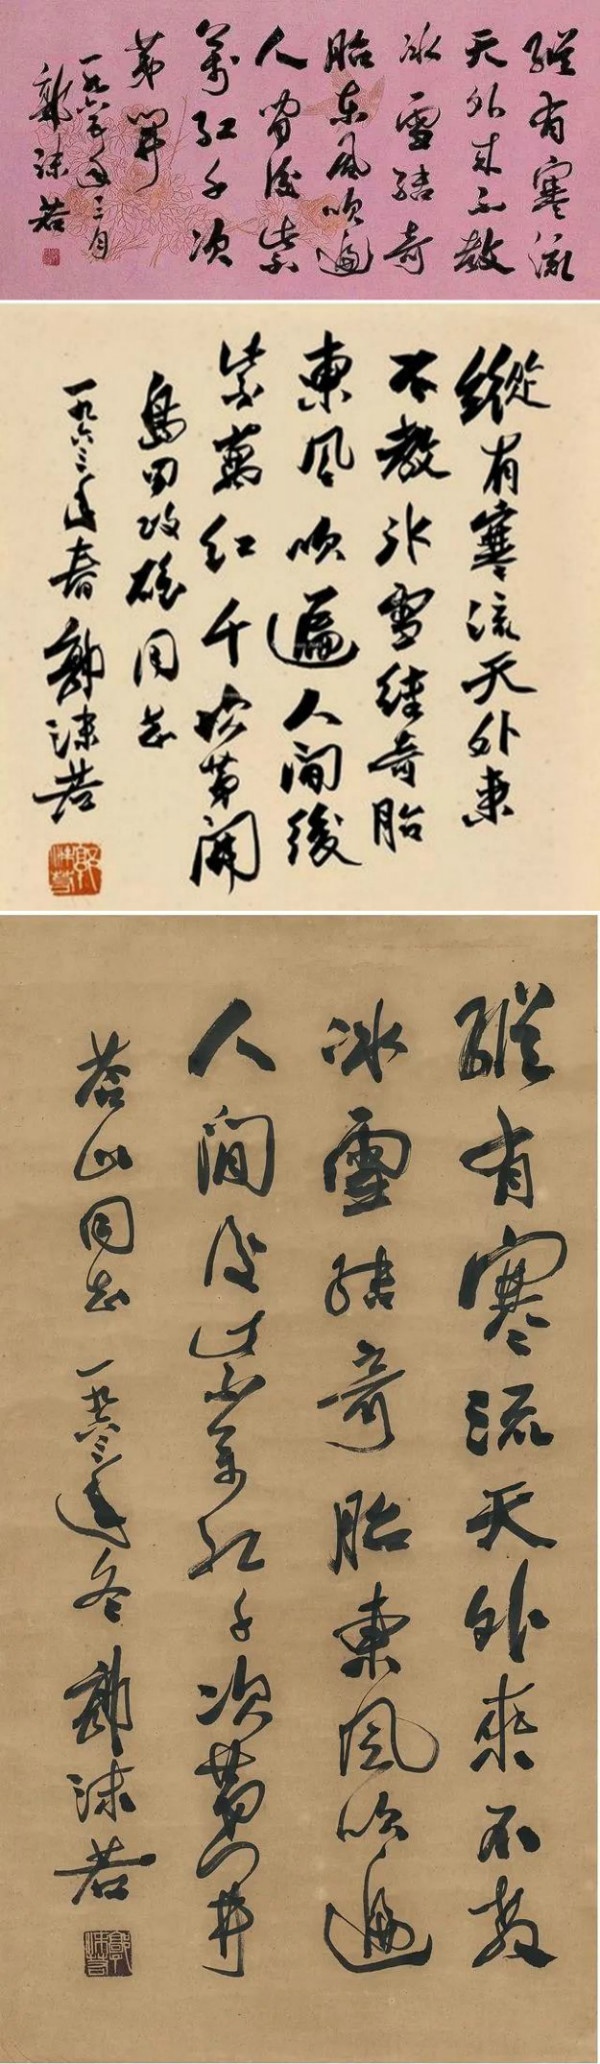 縱有寒流
天外来不教
冰雪結奇
胎東風吹遍
人間後紫
萬紅千次
第開
一九六五年三月
郭沫若
縱有寒流天外來
不教冰雪結奇胎
東風吹遍人間後
紫萬紅千次第開
島田政雄同志
一九六三年春 郭沫若
郭沫若
縱有寒流天外來不教
冰雪結奇胎東風吹遍
人間後紫萬紅千次第開
山同志 一九六三年冬 郭沫若
郭沫若